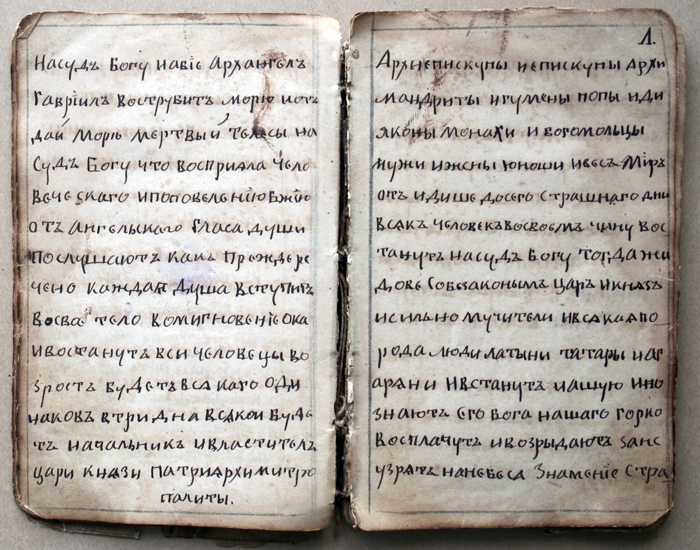 насудъ Богу иавіе Архангелъ
Гавріилъ вострубитъ морю исть
дай Морю мертвый телесы на
Судъ Богу что восприяла Чело
вечеснаго ипоповелению Бжию
отъ ангельскаго гласа души
Послушаютъ какъ Преждере
чено каждая Душа вступитъ
Восвае тело вомигновеніе ока
ивостанутъ вси человецы во
зростъ будетъ всякаго оди
наковъ втридна всякои Буде
тъ начальникъ ивластителъ
цари князи патриярхи митро
политы.
Л.
Архиепискупы иепискупы архи
мандриты игумены попы иди
яконы монахи и вогомольцы
мужи ижены юноши ивесъ Миръ
отъ идише досего страшнаго дни
всякъ человекъ восвоемъ чину вос
танутъ насудъ Богу тогда жи
дове Собеззаконымъ царъ икнязъ
исильно мучители ивсякаяпо
рода люди латыни татары иаг
аряни ивстанутъ иашую ино
знаютъ его Бога нашаго горко
восплачутъ ивозрыдаютъ занс
узрятъ нанебеса Знаменіе Стра